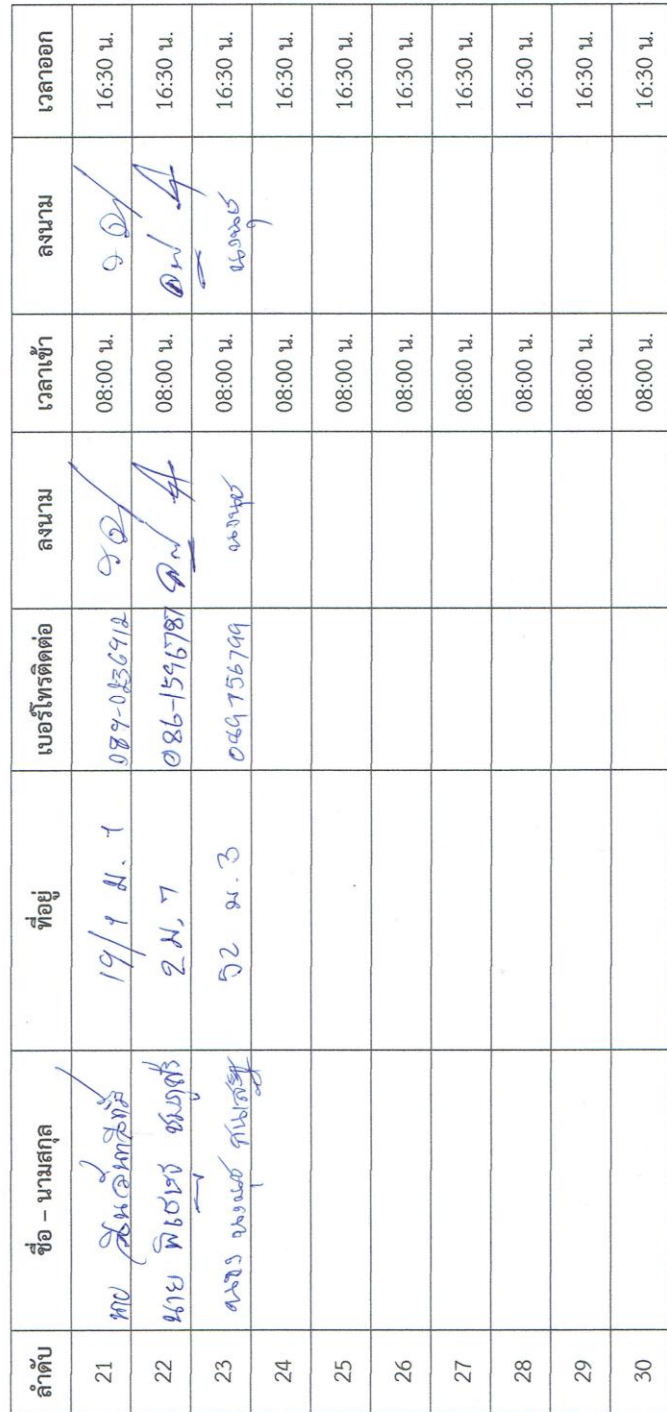 ลำดับ ชื่อ – นามสกุล ที่อยู่ เบอร์โทรติดต่อ ลงนาม เวลาเข้า ลงนาม เวลาออก
21 19/1 ม. 1 08:00 น. 16:30 น.
22 นาย พิเชษฐ 2 ม. 7 086-1596787 08:00 น. 16:30 น.
23 นาง นงนุช 52 ม. 3 นงนุช 08:00 น. นงนุช 16:30 น.
24 08:00 น. 16:30 น.
25 08:00 น. 16:30 น.
26 08:00 น. 16:30 น.
27 08:00 น. 16:30 น.
28 08:00 น. 16:30 น.
29 08:00 น. 16:30 น.
30 08:00 น. 16:30 น.